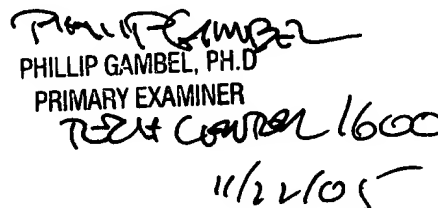 PHILLIP GAMBEL
PHILLIP GAMBEL, PH.D
PRIMARY EXAMINER
TECH CENTER 1600
11/22/05